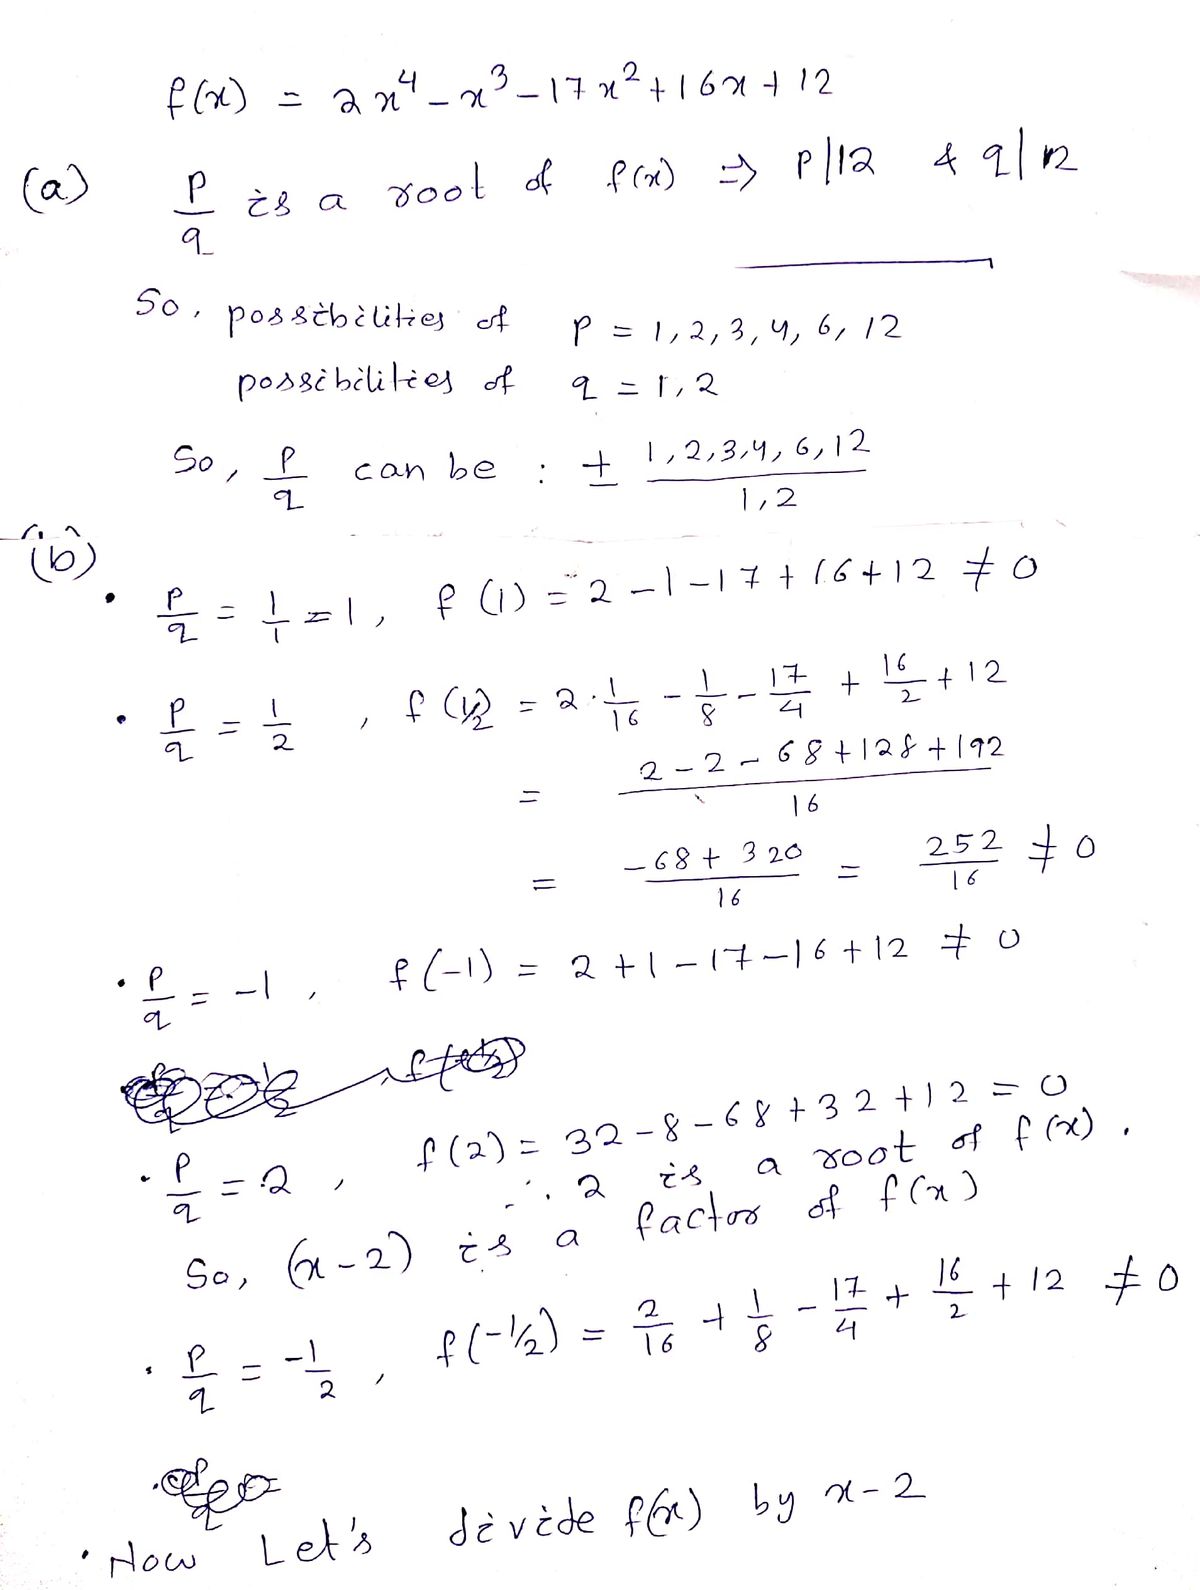 f(x) = 2x⁴ - x³ - 17x² + 16x + 12
(a) p/q is a root of f(x) ⇒ p|12 & q|12
So, possibilities of p = 1, 2, 3, 4, 6, 12
possibilities of q = 1, 2
So, p/q can be : ± 1, 2, 3, 4, 6, 12 / 1, 2
(b)
• p/q = 1/1 = 1, f(1) = 2 - 1 - 17 + 16 + 12 ≠ 0
• p/q = 1/2, f(1/2) = 2 · 1/16 - 1/8 - 17/4 + 16/2 + 12
= (2 - 2 - 68 + 128 + 192)/16
= (-68 + 320)/16 = 252/16 ≠ 0
• p/q = -1, f(-1) = 2 + 1 - 17 - 16 + 12 ≠ 0
• p/q = 2, f(2) = 32 - 8 - 68 + 32 + 12 = 0
∴ 2 is a root of f(x).
So, (x - 2) is a factor of f(x)
• p/q = -1/2, f(-1/2) = 2/16 + 1/8 - 17/4 + 16/2 + 12 ≠ 0
• Now Let's divide f(x) by x - 2